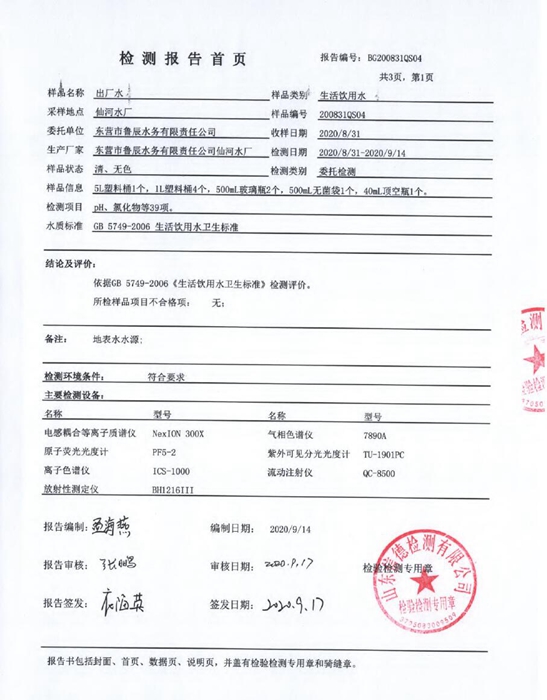 检测报告首页
报告编号: BG200831QS04
共3页, 第1页
样品名称 出厂水 样品类别 生活饮用水
采样地点 仙河水厂 样品编号 200831QS04
委托单位 东营市鲁辰水务有限责任公司 收样日期 2020/8/31
生产厂家 东营市鲁辰水务有限责任公司仙河水厂 检测日期 2020/8/31-2020/9/14
样品状态 清、无色 检测类别 委托检测
样品信息 5L塑料桶1个, 1L塑料桶4个, 500mL玻璃瓶2个, 500mL无菌袋1个, 40mL顶空瓶1个。
检测项目 pH、氯化物等39项。
水质标准 GB 5749-2006 生活饮用水卫生标准
结论及评价:
依据GB 5749-2006《生活饮用水卫生标准》检测评价。
所检样品项目不合格项: 无;
备注: 地表水水源;
检测环境条件: 符合要求
主要检测设备:
名称 型号 名称 型号
电感耦合等离子质谱仪 NexION 300X 气相色谱仪 7890A
原子荧光光度计 PF5-2 紫外可见分光光度计 TU-1901PC
离子色谱仪 ICS-1000 流动注射仪 QC-8500
放射性测定仪 BH1216III
报告编制: 编制日期: 2020/9/14
报告审核: 张鹏 审核日期: 2020.9.17 检验检测专用章
报告签发: 签发日期: 2020.9.17
德检测有限公司
检验检测专用章
报告书包括封面、首页、数据页、说明页, 并盖有检验检测专用章和骑缝章。